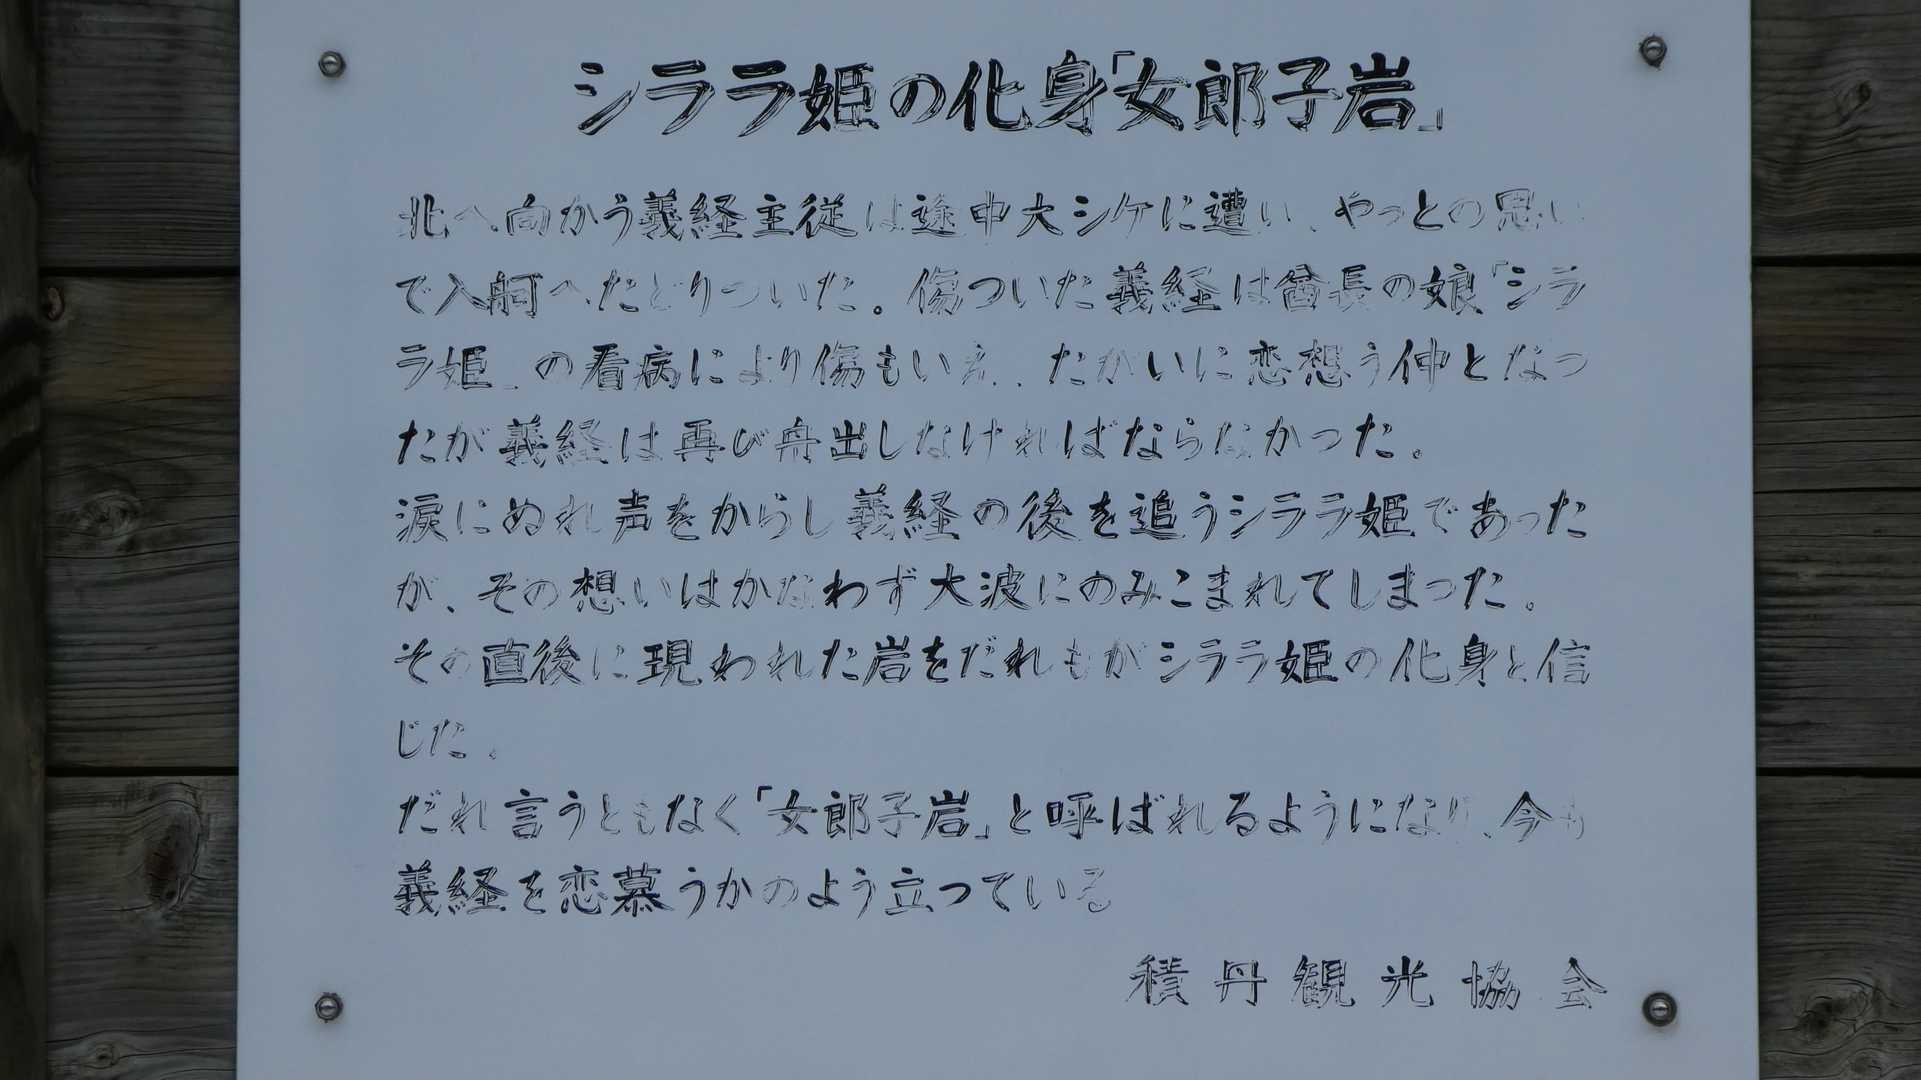 シララ姫の化身「女郎子岩」
北へ向かう義経主従は途中大シケに遭い、やっとの思い
で入舸へたどりついた。傷ついた義経は酋長の娘「シラ
ラ姫」の看病により傷もいえ、たがいに恋想う仲となっ
たが義経は再び舟出しなければならなかった。
涙にぬれ声をからし義経の後を追うシララ姫であった
が、その想いはかなわず大波にのみこまれてしまった。
その直後に現われた岩をだれもがシララ姫の化身と信
じた。
だれ言うともなく「女郎子岩」と呼ばれるようになり、今も
義経を恋慕うかのよう立っている
積丹観光協会